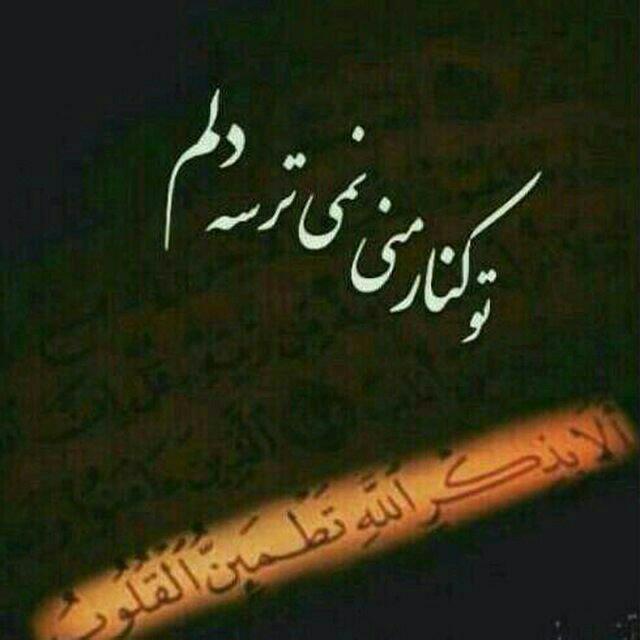 تو کنار منی نمی ترسه دلم
أَلَا بِذِكْرِ اللَّهِ تَطْمَئِنُّ الْقُلُوبُ